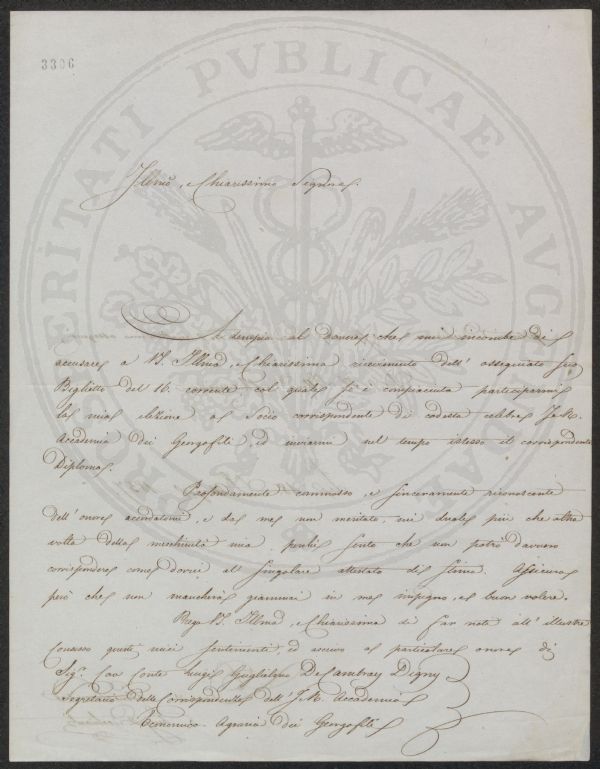 3306
PROSPERITATI PVBLICAE AVGENDAE
Illmo e Chiarissimo Signore
Adempio al dovere che mi incombe di
accusare a V.S. Illma e Chiarissima ricevimento dell' ossequiato suo
Biglietto del 16. corrente col quale si è compiaciuta parteciparmi
la mia elezione a Socio corrispondente di codesta celebre I. R.
Accademia dei Georgofili, ed inviarmi nel tempo istesso il corrispondente
Diploma.
Profondamente commosso e sinceramente riconoscente
dell' onore accordatomi, e da me non meritato, mi duole più che altra
volta della meschinità mia, perchè sento che non potrò davvero
corrispondere come dovrei al singolare attestato di stima. Assicuro
però che non mancherà giammai in me impegno, e buon volere.
Prego V.S. Illma e Chiarissima di far note all' illustre
Consesso questi miei sentimenti, ed ascrivo al particolare onore di
Sig. Cav. Conte Luigi Guglielmo De Cambray Digny
Segretario delle Corrispondenze dell' I. R. Accademia
Economico-Agraria dei Georgofili